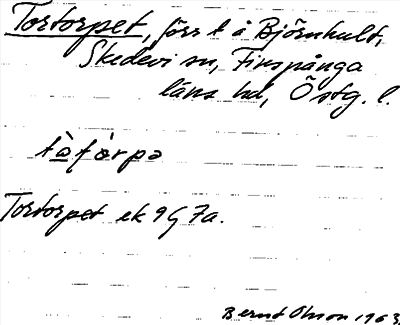 Tortorpet, förr t å Björnhult,
Skedevi sn, Finspånga
läns hd, Östg. l.
tɷ̀tɷ̀rpə
Tortorpet ek 9G 7a.
Bernt Olsson 1963.